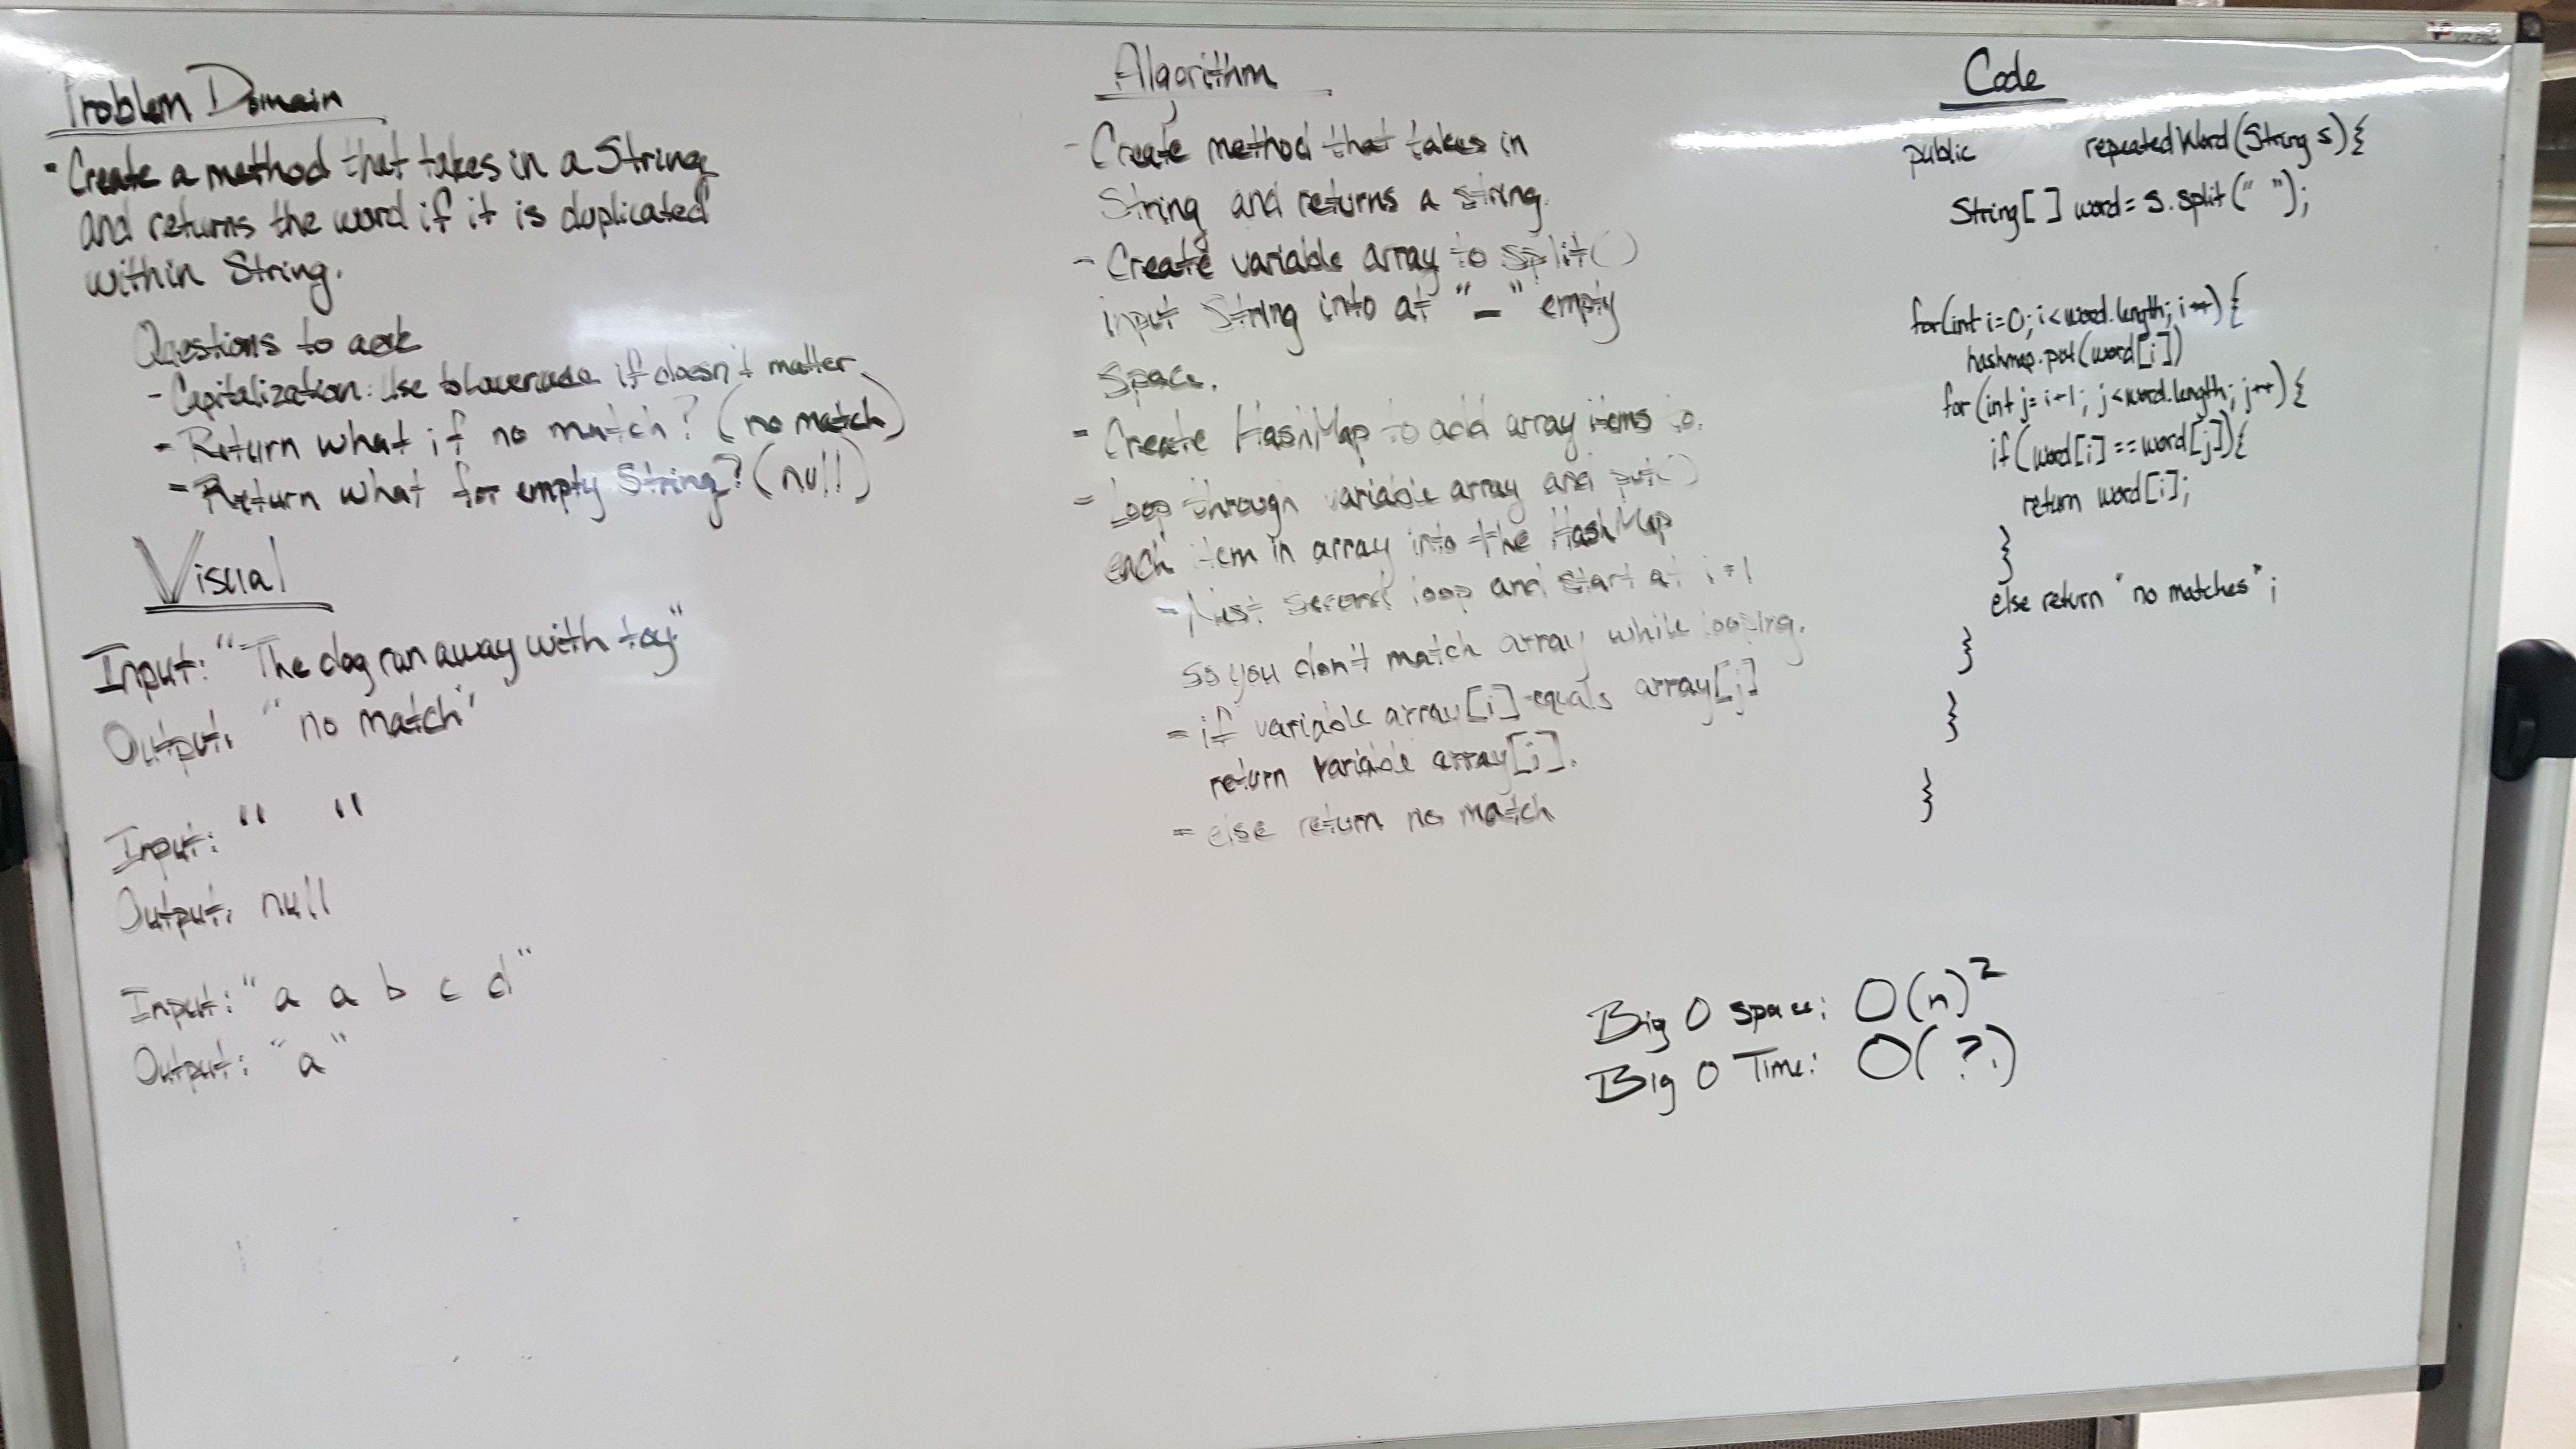 Problem Domain
- Create a method that takes in a String
and returns the word if it is duplicated
within String.
Questions to ask
- Capitalization: Use tolowercase if doesn't matter
- Return what if no match? (no match)
- Return what for empty String? (null)
Visual
Input: "The dog ran away with toy"
Output: "no match"
Input: " "
Output: null
Input: "a a b c d"
Output: "a"
Algorithm
- Create method that takes in
String and returns a string.
- Create variable array to split()
input String into at "_" empty
space.
- Create HashMap to add array items to.
- Loop through variable array and put()
each item in array into the HashMap
- Nest second loop and start at i+1
so you don't match array while looping.
- if variable array[i] equals array[j]
return variable array[i].
- else return no match
Code
public repeatedWord(String s){
String[] word = s.split(" ");
for(int i=0; i<word.length; i++){
hashmap.put(word[i])
for(int j=i+1; j<word.length; j++){
if(word[i]==word[j]){
return word[i];
}
else return "no matches";
}
}
}
Big O space: O(n)²
Big O Time: O(?)